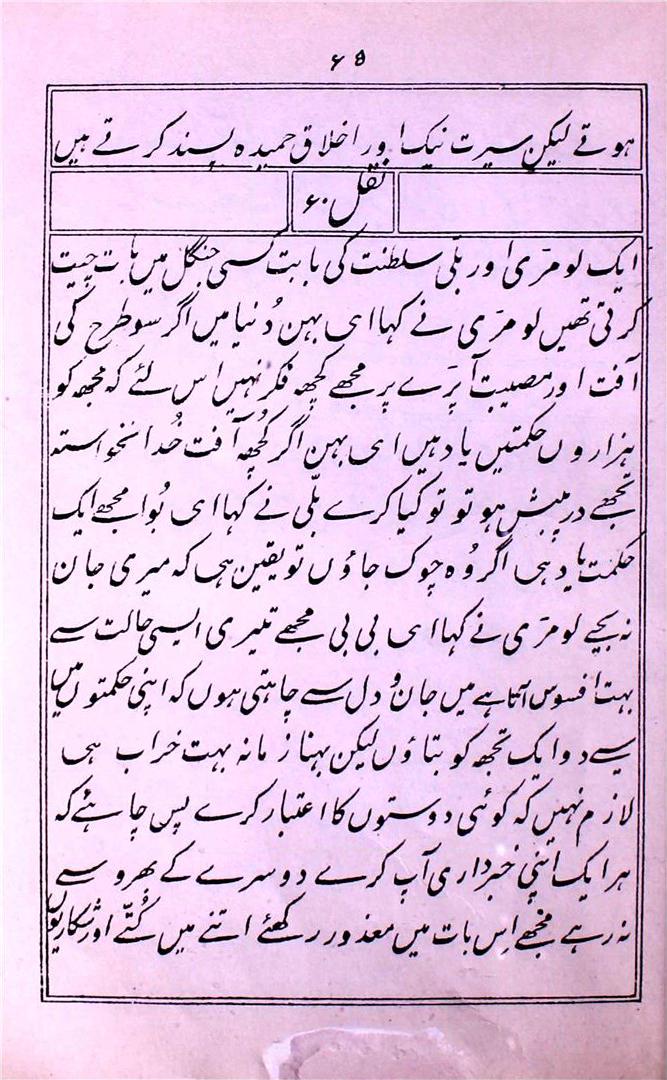 ۶۵
ہوتے لیکن سیرت نیک اور اخلاق حمیدہ پسند کرتے ہیں
نقل ۶۰
ایک لومڑی اور بلّی سلطنت کی بابت کسی جنگل میں بات چیت
کرتی تھیں لومڑی نے کہا ای بہن دُنیا میں اگر سو طرح کی
آفت اور مصیبت آ پڑے پر مجھے کچھ فکر نہیں اس لئے کہ مجھ کو
ہزاروں حکمتیں یاد ہیں ای بہن اگر کُچھ آفت خُدا نخواستہ
تجھے درپیش ہو تو تو کیا کرے بلّی نے کہا ای بُوا مجھے ایک
حکمت یاد ہی اگر وُہ چوک جاؤں تو یقین ہی کہ میری جان
نہ بچے لومڑی نے کہا ای بی بی مجھے تیری ایسی حالت سے
بہت افسوس آتا ہے میں جان و دل سے چاہتی ہوں کہ اپنی حکمتوں میں
سے دو ایک تجھ کو بتاؤں لیکن بہنا زمانہ بہت خراب ہی
لازم نہیں کہ کوئی دوستوں کا اعتبار کرے پس چاہئے کہ
ہر ایک اپنی خبرداری آپ کرے دوسرے کے بھروسے
نہ رہے مجھے اِس بات میں معذور رکھئے اتنے میں کُتّے اور شکاریوں